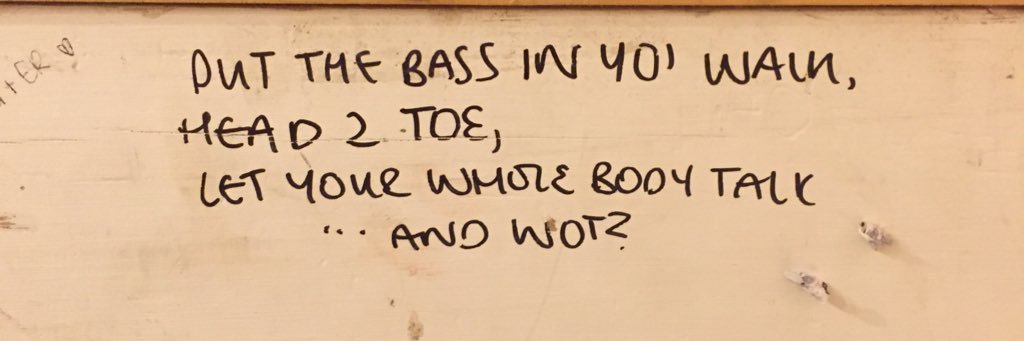 PUT THE BASS IN YO' WALK,
HEAD 2 TOE,
LET YOUR WHOLE BODY TALK
... AND WOT?